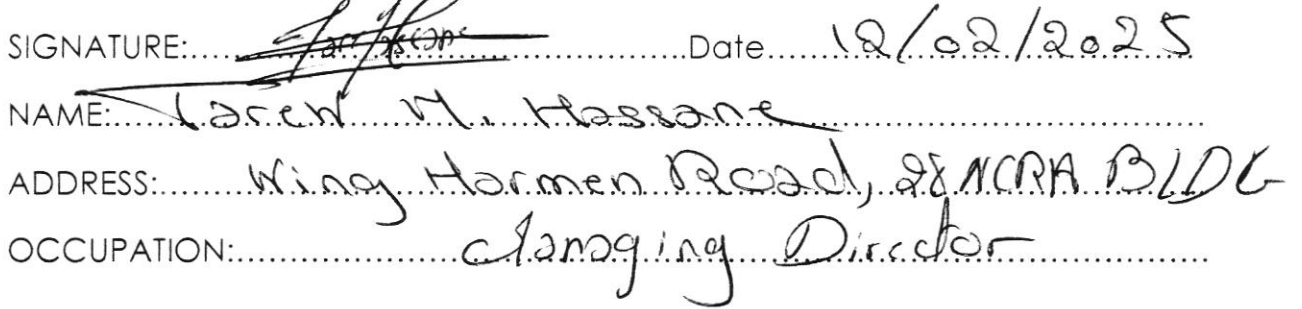 SIGNATURE: Date 12/02/2025
NAME: Tarew M. Hassane
ADDRESS: Wing Harmen Road, 28 NCRA BLDG
OCCUPATION: Managing Director